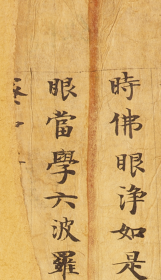 時佛眼浄如是
眼當學六波羅